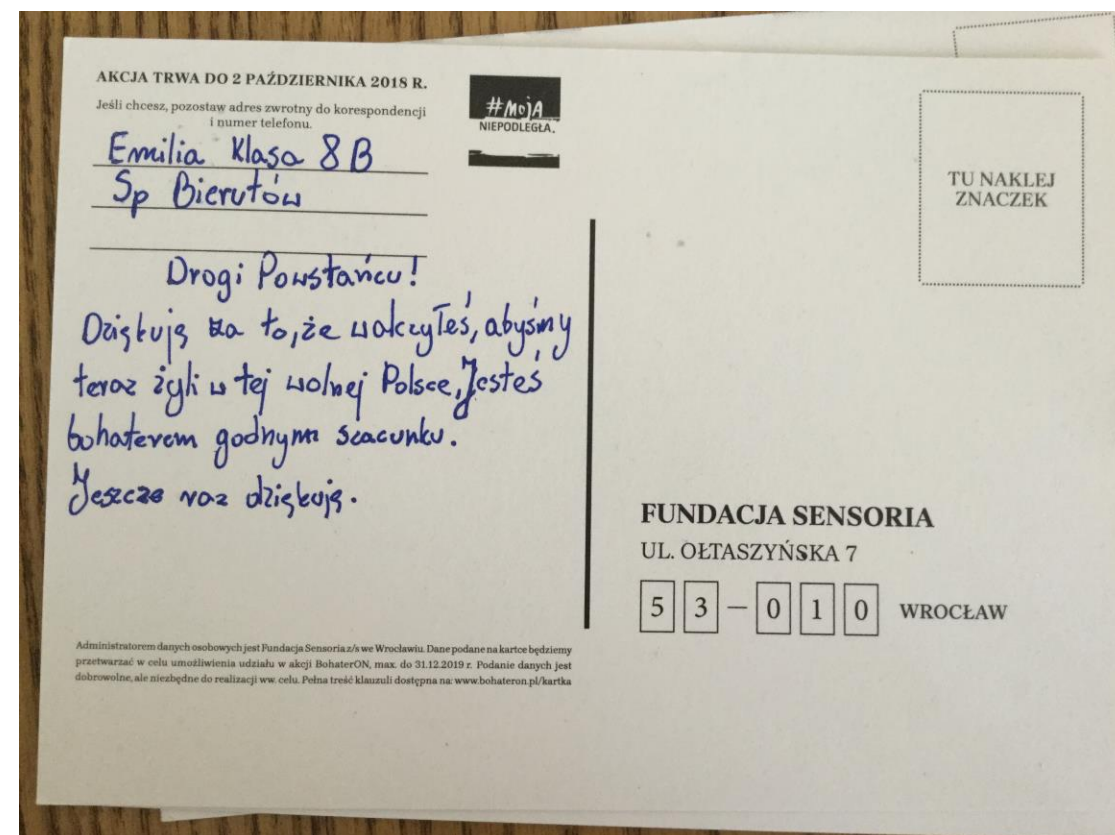 AKCJA TRWA DO 2 PAŹDZIERNIKA 2018 R.
Jeśli chcesz, pozostaw adres zwrotny do korespondencji
i numer telefonu.
#MOJA
NIEPODLEGŁA.
Emilia Klasa 8 B
Sp Bierutów
Drogi Powstańcu!
Dziękuję za to, że walczyłeś, abyśmy
teraz żyli w tej wolnej Polsce, Jesteś
bohaterem godnym szacunku.
Jeszcze raz dziękuję.
TU NAKLEJ
ZNACZEK
FUNDACJA SENSORIA
UL. OŁTASZYŃSKA 7
53-010 WROCŁAW
Administratorem danych osobowych jest Fundacja Sensoria z/s we Wrocławiu. Dane podane na kartce będziemy
przetwarzać w celu umożliwienia udziału w akcji BohaterON, max. do 31.12.2019 r. Podanie danych jest
dobrowolne, ale niezbędne do realizacji ww. celu. Pełna treść klauzuli dostępna na: www.bohateron.pl/kartka